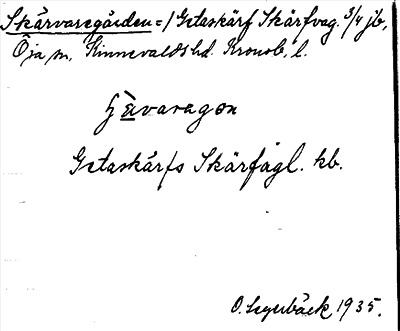 Skärvaregården = / Getaskärf Skärfvag. 3/4 jb,
Öja sn, Kinnevalds hd. Kronob. l.
ɧàvaragɔn
Getaskärfs Skärfägl. kb.
O. Lagerbäck 1935.